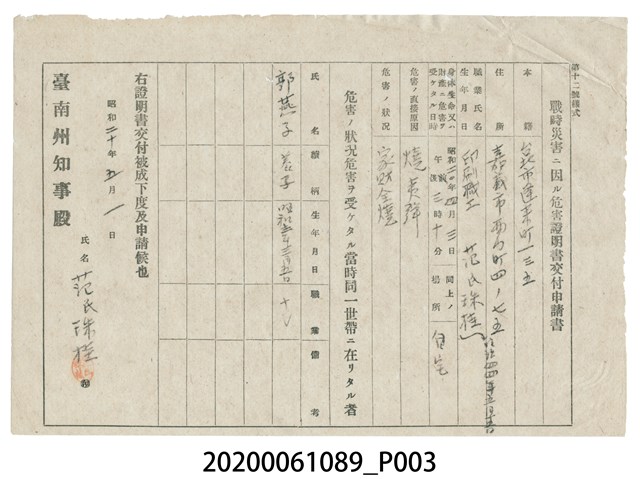 第十二號樣式
戰時災害ニ因ル危害證明書交付申請書
本籍 台北市蓬萊町一三五
住所 嘉義市西門町四ノ七五
職業氏名 印刷職工 范氏珠桂
生年月日
身体生命又ハ財產ニ危害ヲ受ケタル日時 昭和二〇年四月三日 午前後三時十分 同上ノ場所 自宅
危害ノ直接原因 燒夷彈
危害ノ狀況 家財全燒
危害ノ狀況危害ヲ受ケタル當時同一世帶ニ在リタル者
氏名 續柄 生年月日 職業 備考
郭燕子 養子
右證明書交付被成下度及申請候也
昭和二十年五月一日
氏名 范氏珠桂
臺南州知事殿
20200061089_P003